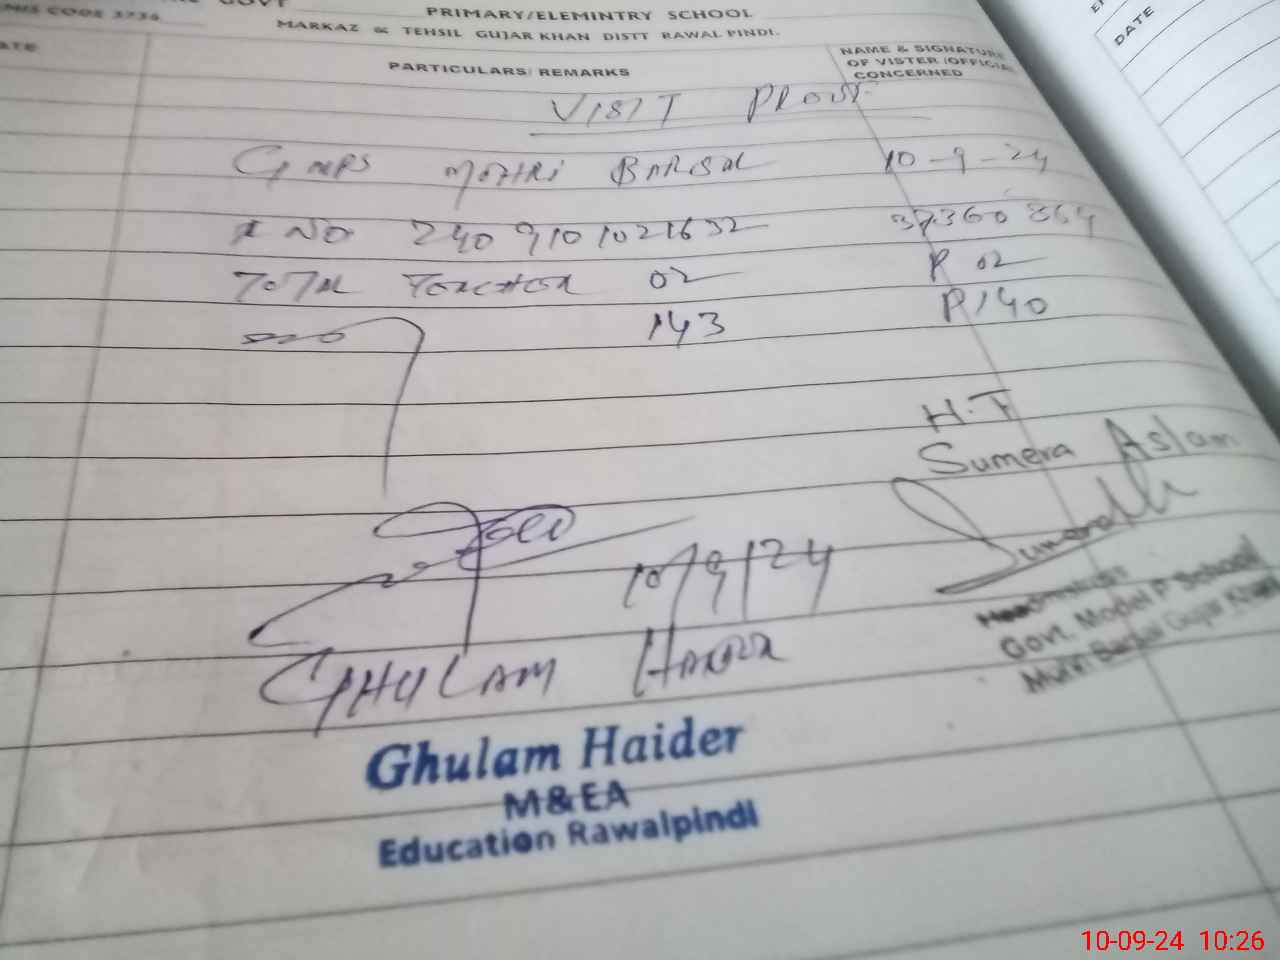 GOVT PRIMARY/ELEMINTRY SCHOOL
MARKAZ & TEHSIL GUJAR KHAN DISTT RAWAL PINDI.
PARTICULARS/ REMARKS
NAME & SIGNATURE
OF VISTER /OFFICIA
CONCERNED
DATE
VISIT PROOF
GMPS MOHRI BARSAL 10-9-24
NO 2409101021632 37360864
TOTAL TEACHER 02 P 02
143 P 140
H.T
Sumera Aslam
10/9/24
GHULAM HAIDER
Govt. Model P School
Gujar Khan
Ghulam Haider
M&EA
Education Rawalpindi
10-09-24 10:26